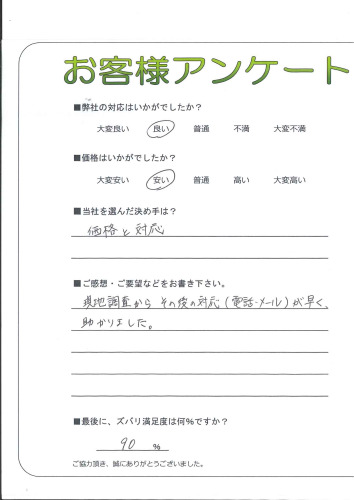 お客様アンケート
■弊社の対応はいかがでしたか？
大変良い 良い 普通 不満 大変不満
■価格はいかがでしたか？
大変安い 安い 普通 高い 大変高い
■当社を選んだ決め手は？
価格と対応
■ご感想・ご要望などをお書き下さい。
現地調査から その後の対応（電話・メール）が早く、
助かりました。
■最後に、ズバリ満足度は何％ですか？
90 ％
ご協力頂き、誠にありがとうございました。